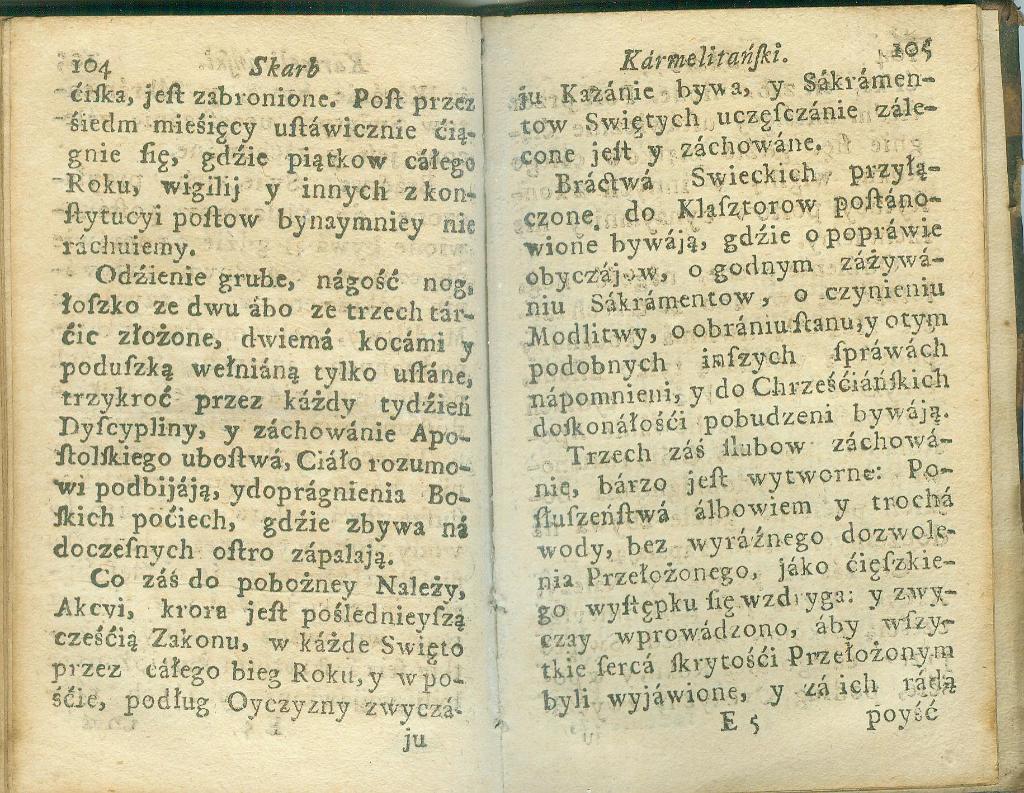 104 Skarb
ćiſka, jeſt zabronione. Poſt przez
śiedm mieśięcy uſtáwicznie ćią-
gnie ſię, gdźie piątkow cáłego
Roku, wigilij y innych z kon-
ſtytucyi poſtow bynaymniey nie
ráchuiemy.
Odźienie grube, nágość nog,
łoſzko ze dwu ábo ze trzech tár-
ćic złożone, dwiemá kocámi y
poduſzką wełniáną tylko uſłáne,
trzykroć przez káżdy tydźień
Dyſcypliny, y záchowánie Apo-
ſtolſkiego uboſtwá, Ciáło rozumo-
wi podbijáją, y do prágnienia Bo-
ſkich poćiech, gdźie zbywa ná
doczeſnych oſtro zápalają.
Co záś do pobożney Należy,
Akcyi, ktora jeſt poślednieyſzą
cześćią Zakonu, w káżde Swięto
przez cáłego bieg Roku, y w po-
śćie, podług Oyczyzny zwyczá-
ju
Kármelitáńſki. 105
ju Kazánie bywa, y Sákrámen-
tow Swiętych uczęſczánie zále-
cone jeſt y záchowáne.
Bráctwá Swieckich przyłą-
czone do Klaſztorow poſtáno-
wione bywáją, gdźie o popráwie
obyczájow, o godnym záżywá-
niu Sákrámentow, o czynieniu
Modlitwy, o obrániu ſtanu, y o tym
podobnych inſzych ſpráwách
nápomnieni, y do Chrześćiáńſkich
doſkonáłośći pobudzeni bywáją.
Trzech záś ſlubow záchowá-
nie, bárzo jeſt wytworne: Po-
ſłuſzeńſtwá álbowiem y trochá
wody, bez wyráźnego dozwole-
nia Przełożonego, jáko ćięſzkie-
go wyſtępku ſię wzdryga: y zwy-
czay wprowádzono, áby wſzy-
tkie ſercá ſkrytośći Przełożonym
byli wyjáwione, y zá ich rádą
E 5 poyść